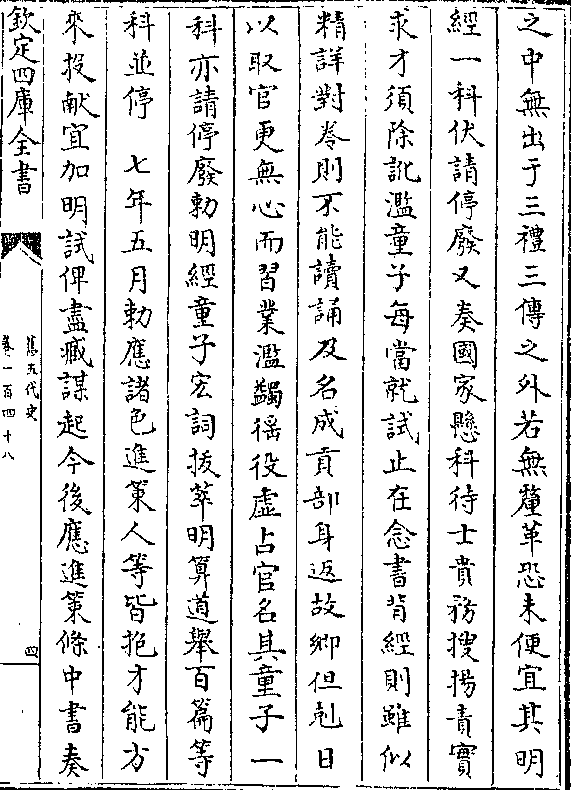 之中無出于三禮三傳之外若無釐革恐未便宜其明
經一科伏請停廢又奏國家懸科待士貴務搜揚責實
求才須除訛濫童子每當就試止在念書背經則雖似
精詳對卷則不能讀誦及名成貢部身返故鄉但剋日
以取官更無心而習業濫蠲徭役虛占官名其童子一
科亦請停廢勅明經童子宏詞拔萃明算道舉百篇等
科並停　七年五月勅應諸色進策人等皆抱才能方
來投献宜加明試俾盡臧謀起今後應進策條中書奏
欽定四庫全書
舊五代史
卷一百四十八
四